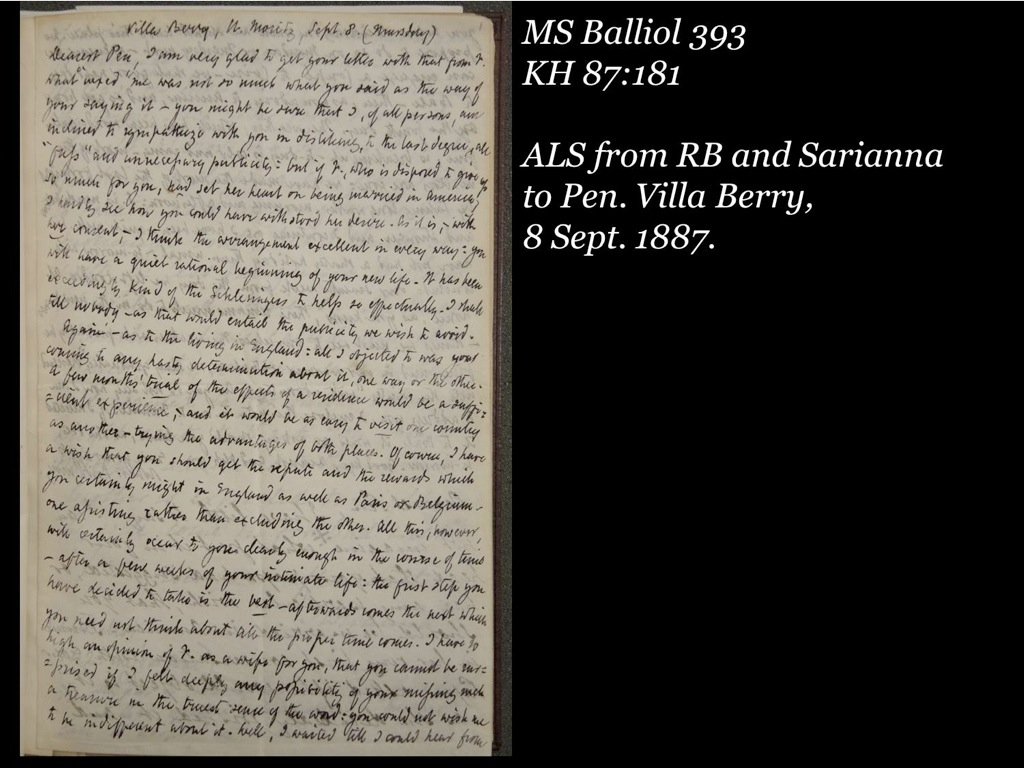 Villa Berry, St. Moritz, Sept. 8. (Thursday)
Dearest Pen, I am very glad to get your letter with that from F.
what "vexed" me was not so much what you said as the way of
your saying it – you might be sure that I, of all persons, am
inclined to sympathize with you in disliking, to the last degree, all
"fuss" and unnecessary publicity: but if F., who is disposed to give up
so much for you, had set her heart on being married in America,
I hardly see how you could have withstood her desire. As it is, – with
her consent, – I think the arrangement excellent in every way: you
will have a quiet rational beginning of your new life. It has been
exceedingly kind of the Schlesingers to help so effectually. I shall
tell nobody – as that would entail the publicity we wish to avoid.
Again – as to the living in England: all I objected to was your
coming to any hasty determination about it, one way or the other.
A few months' trial of the effects of a residence would be a suffi=
=cient experience, – and it would be as easy to visit one country
as another – trying the advantages of both places. Of course, I have
a wish that you should get the repute and the rewards which
you certainly might in England as well as Paris or Belgium –
one assisting rather than excluding the other. All this, however,
will certainly occur to you clearly enough in the course of time
– after a few weeks of your intimate life: the first step you
have decided to take is the best – afterwards comes the next which
you need not think about till the proper time comes. I have so
high an opinion of F. as a wife for you, that you cannot be sur=
=prised if I felt deeply any possibility of your missing such
a treasure in the truest sense of the word: you could not wish me
to be indifferent about it. Well, I waited till I could hear from
MS Balliol 393
KH 87:181
ALS from RB and Sarianna
to Pen. Villa Berry,
8 Sept. 1887.